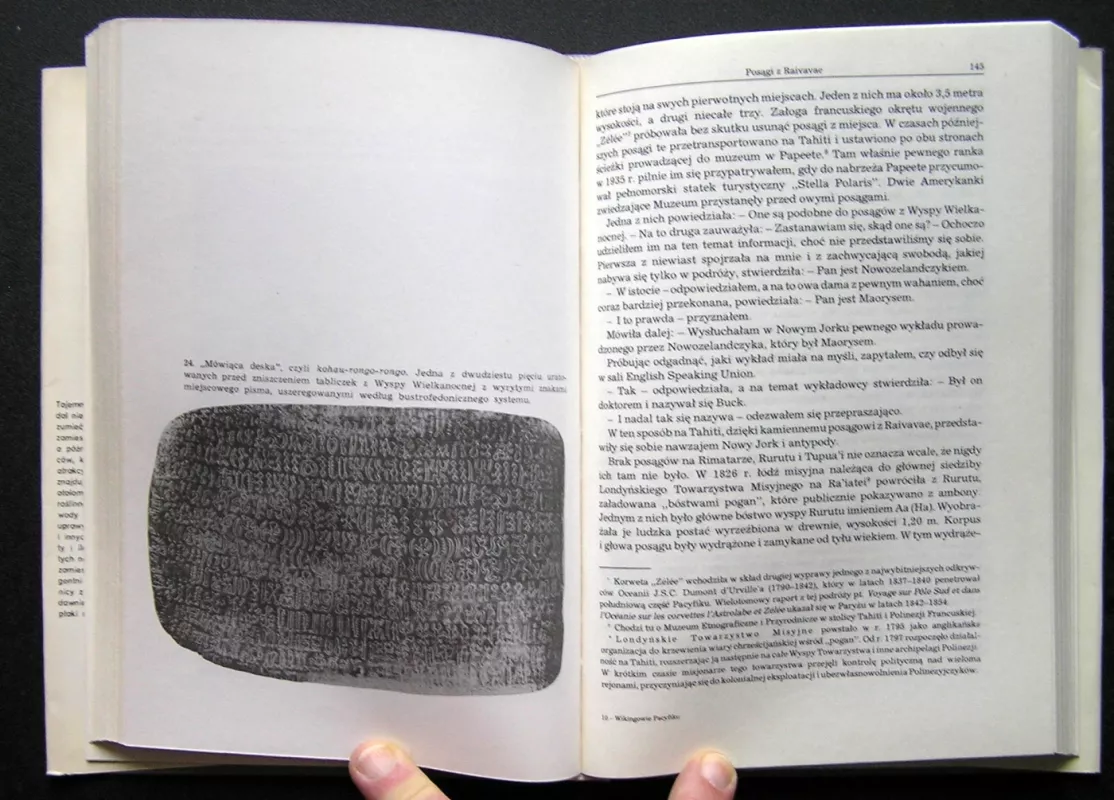 24. „Mówiąca deska”, czyli kohau-rongo-rongo. Jedna z dwudziestu pięciu urato-
wanych przed zniszczeniem tabliczek z Wyspy Wielkanocnej z wyrytymi znakami
miejscowego pisma, uszeregowanymi według bustrofedonicznego systemu.
Tajemn
dal nie
zumieć
zamies
a późr
ców, k
atrakcy
znajdu
atolom
roślinn
wody
uprawy
i innyc
ty i il
tych n
zamies
gonini
nicy z
dawnie
ptaki
Posągi z Raivavae 145
które stoją na swych pierwotnych miejscach. Jeden z nich ma około 3,5 metra
wysokości, a drugi niecałe trzy. Załoga francuskiego okrętu wojennego
„Zélée”⁷ próbowała bez skutku usunąć posągi z miejsca. W czasach później-
szych posągi te przetransportowano na Tahiti i ustawiono po obu stronach
ścieżki prowadzącej do muzeum w Papeete.⁸ Tam właśnie pewnego ranka
w 1935 r. pilnie im się przypatrywałem, gdy do nabrzeża Papeete przycumo-
wał pełnomorski statek turystyczny „Stella Polaris”. Dwie Amerykanki
zwiedzające Muzeum przystanęły przed owymi posągami.
Jedna z nich powiedziała: – One są podobne do posągów z Wyspy Wielka-
nocnej. – Na to druga zauważyła: – Zastanawiam się, skąd one są? – Ochoczo
udzieliłem im na ten temat informacji, choć nie przedstawiliśmy się sobie.
Pierwsza z niewiast spojrzała na mnie i z zachwycającą swobodą, jakiej
nabywa się tylko w podróży, stwierdziła: – Pan jest Nowozelandczykiem.
– W istocie – odpowiedziałem, a na to owa dama z pewnym wahaniem, choć
coraz bardziej przekonana, powiedziała: – Pan jest Maorysem.
– I to prawda – przyznałem.
Mówiła dalej: – Wysłuchałam w Nowym Jorku pewnego wykładu prowa-
dzonego przez Nowozelandczyka, który był Maorysem.
Próbując odgadnąć, jaki wykład miała na myśli, zapytałem, czy odbył się
w sali English Speaking Union.
– Tak – odpowiedziała, a na temat wykładowcy stwierdziła: – Był on
doktorem i nazywał się Buck.
– I nadal tak się nazywa – odezwałem się przepraszająco.
W ten sposób na Tahiti, dzięki kamiennemu posągowi z Raivavae, przedsta-
wiły się sobie nawzajem Nowy Jork i antypody.
Brak posągów na Rimatarze, Rurutu i Tupua'i nie oznacza wcale, że nigdy
ich tam nie było. W 1826 r. łódź misyjna należąca do głównej siedziby
Londyńskiego Towarzystwa Misyjnego na Ra'iatei⁹ powróciła z Rurutu,
załadowana „bóstwami pogan”, które publicznie pokazywano z ambony.
Jednym z nich było główne bóstwo wyspy Rurutu imieniem Aa (Ha). Wyobra-
żała je ludzka postać wyrzeźbiona w drewnie, wysokości 1,20 m. Korpus
i głowa posągu były wydrążone i zamykane od tyłu wiekiem. W tym wydrąże-
⁷ Korweta „Zélée” wchodziła w skład drugiej wyprawy jednego z najwybitniejszych odkryw-
ców Oceanii J.S.C. Dumont d'Urville'a (1790–1842), który w latach 1837–1840 penetrował
południową część Pacyfiku. Wielotomowy raport z tej podróży pt. Voyage sur Pôle Sud et dans
l'Océanie sur les corvettes l'Astrolabe et Zélée ukazał się w Paryżu w latach 1842–1854.
⁸ Chodzi tu o Muzeum Etnograficzne i Przyrodnicze w stolicy Tahiti i Polinezji Francuskiej.
⁹ Londyńskie Towarzystwo Misyjne powstało w r. 1795 jako anglikańska
organizacja do krzewienia wiary chrześcijańskiej wśród „pogan”. Od r. 1797 rozpoczęło działal-
ność na Tahiti, rozszerzając ją następnie na całe Wyspy Towarzystwa i inne archipelagi Polinezji.
W krótkim czasie misjonarze tego towarzystwa przejęli kontrolę polityczną nad wieloma
rejonami, przyczyniając się do kolonialnej eksploatacji i ubezwłasnowolnienia Polinezyjczyków.
10 – Wikingowie Pacyfiku